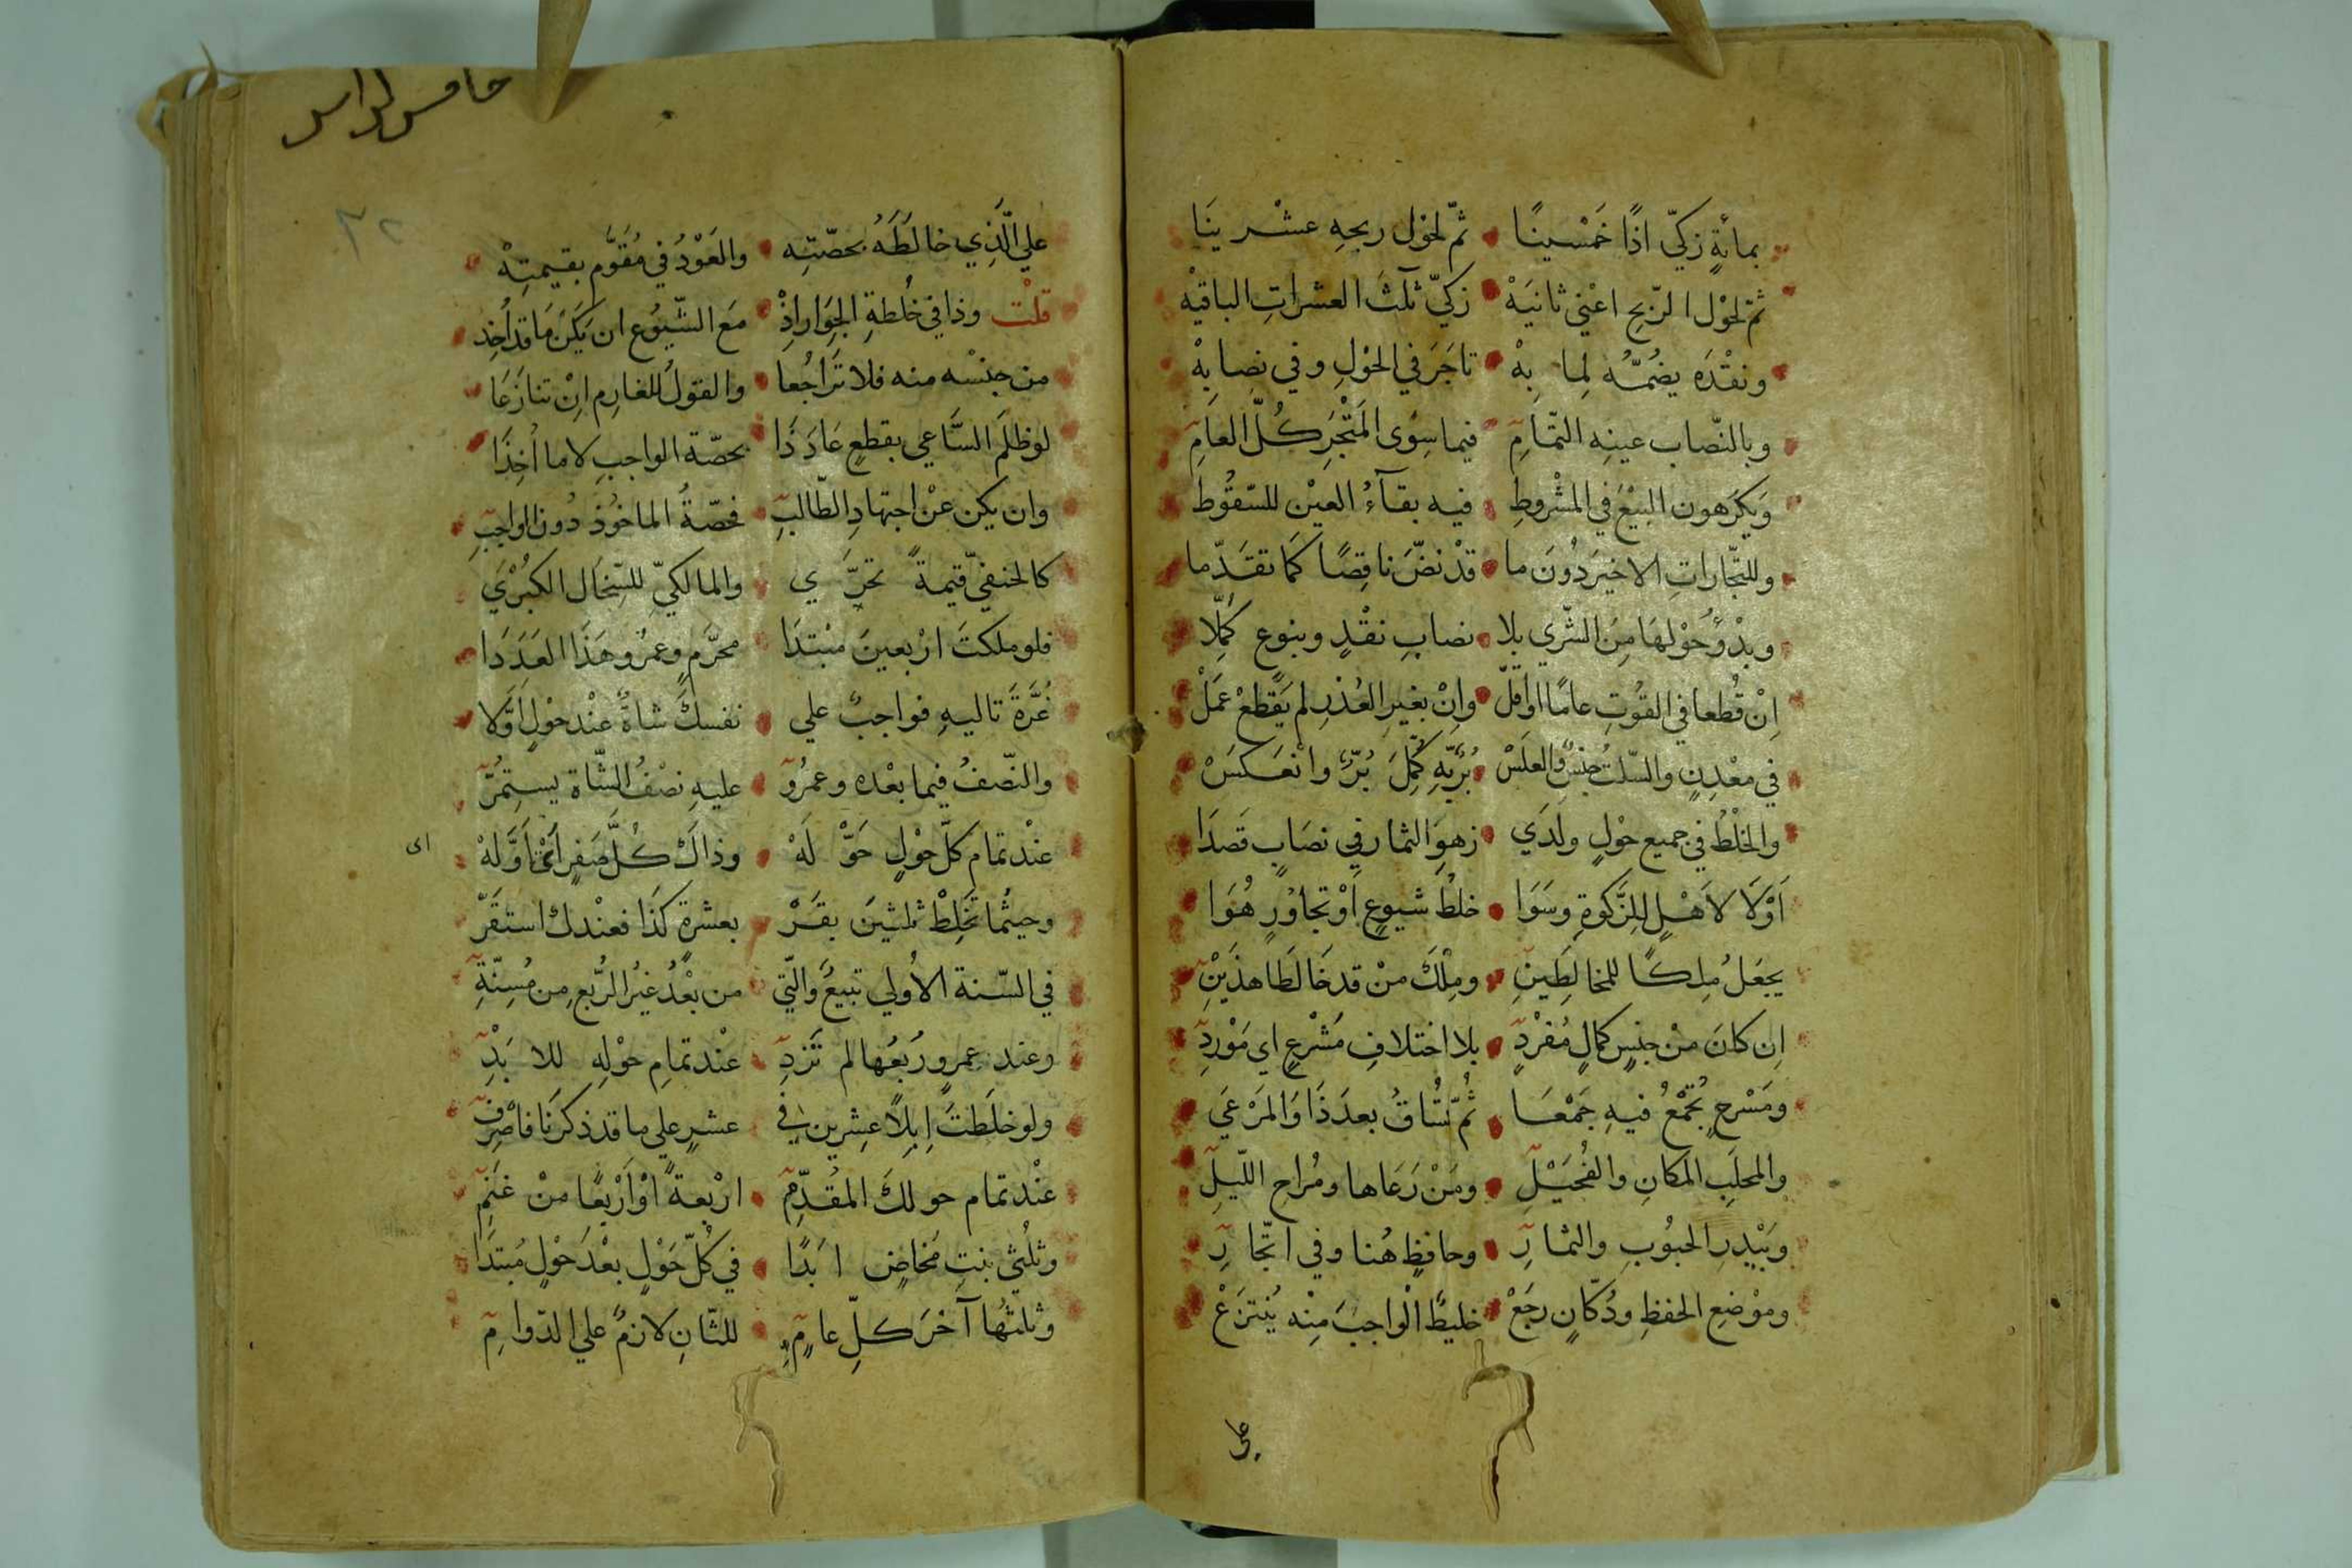 بمائةٍ زكيّ اذًا خَمْسينًا ثمّ لحوْل ربحِهِ عشْرينَا
ثمّ لحوْل الرّبح اعْني ثانيَهْ زكيّ ثلثَ العشراتِ الباقيْه
ونقْدَه يضُمُّه لِما بِهْ تاجَرَ في الحوْلِ وفي نصابِهْ
وبالنّصاب عينِه التّمامِ فيما سِوَى المَتْجَرِ كُلَّ العامِ
وَيكرَهون البيْعَ في المشْروطِ فيه بقآءُ العيْن للسّقُوط
وللتّجاراتِ الاخيرَ دُونَ ما قدْ نضَّ ناقِصًا كَمَا تقَدّما
وبدْؤُ حوْلهَا مِنَ الشّري بلا نصابِ نقْدٍ وبنوعٍ كُمِّلا
اِنْ قُطعا في القُوتِ عامًا اواقلّ وانْ بغيرِ العُذرِ لم يَقْطعْ عَمَلْ
في معْدِنٍ والسّلتُ جنسٌ والعلَسْ بُرٌّ بِهِ كُمِّلَ بُرٌّ وانْعَكسَْ
والخلْطُ في جميع حوْلٍ ولدَي زهوِ الثمار في نصَابٍ قصَدَا
اَوَّلا لاَهْلٍ لِلزَّكوةِ وسَوَا خلطُ شيوعٍ اوْ تجاوُرٍ هُوَا
يجعَلُ مِلكًا للمخالِطَينِ ومِلْكَ منْ قد خَالَطَا هذَيْنِ
اِن كانَ منْ جنسٍ كمالٍ مُفرْدِ بلا اختلافِ مَشْرعٍ اي مَوْرِدِ
ومَسْرحٍ تُجْمَعُ فيهِ جَمْعَا ثُمّ تُسَاقُ بعدَ ذَا وَالمَرْعَي
والمحلَبِ المَكانِ والفُحَيْلِ ومَنْ رَعَاها ومُراحِ اللّيلِ
وبَيْدرِ الحبُوبِ والثمارِ وحافظٍ هُنا وفي اتّجارِ
وموْضعِ الحفظِ ودُكّانٍ رجَعْ خليطٌ الْواجبَ مِنْه يُنتزَعْ
على
خامس كراس
٣٢
علي الّذِي خالَطَهُ بحصّتِه والعَوْدُ في مُقوَّمٍ بقيمتِهْ
قلْت وذا في خُلْطةِ الجِوَار اذْ مَع الشّيُوع ان يَكنْ مَا قد أُخِذ
من جنْسه منه فلا تَرَاجُعا والقولُ للغارِم اِنْ تنازَعَا
لو ظلَم السَّاعي بقطعٍ عَادَ ذَا بحصّة الواجبِ لا ما اُخِذَا
وان يكن عنْ اجتهادِ الطّالبِ فحصّةُ الماخوُذ دُون الواجبِ
كالحنفيِّ قيمةً تحرَّي والمالكيِّ للسّخال الكبْرَي
فلو ملكتَ ارْبعينَ مبْتدَا محرَّمٍ وعمرُو هَذَا العَدَدا
غُرَّةَ تاليهِ فواجبٌ علي نفسكَ شاةٌ عنْد حوْلٍ اوَّلا
والنّصفُ فيما بعْده وعمرُو عليهِ نصْفُ الشّاة يستمِرُّ
عنْد تمام كلّ حوْلٍ حَقّ لَهْ وذاكَ كُلَّ صَفرٍ اَيْ اَوَّلهْ
اى
وحيثُما تَخْلِطْ ثلثينَ بقَرْ بعشرةٍ كذَا فعنْدك استقَرّ
في السّنة الاُولي تبيعٌ والّتي من بعْدُ غيرُ الرُّبعِ من مُسِنّةِ
وعند عمرٍو رُبعُها لم تَزدِ عنْد تمامِ حوْلِهِ للابَدِ
ولو خلَطتَ اِبِلًا عِشرين في عشرٍ علي ما قد ذكرَنا فاصْرِفِ
عنْد تمام حولكَ المقُدَّمِ ارْبعةً اوْ اَرْبعًا منْ غنَمِ
وثلُثي بنتِ مَخاضٍ ابَدًا في كُلّ حَوْلٍ بعْدَ حوْلٍ مُبتَدَا
وثلثُها آخرَ كلِّ عامٍ للثّانِ لازمٌ علي الدّوامِ